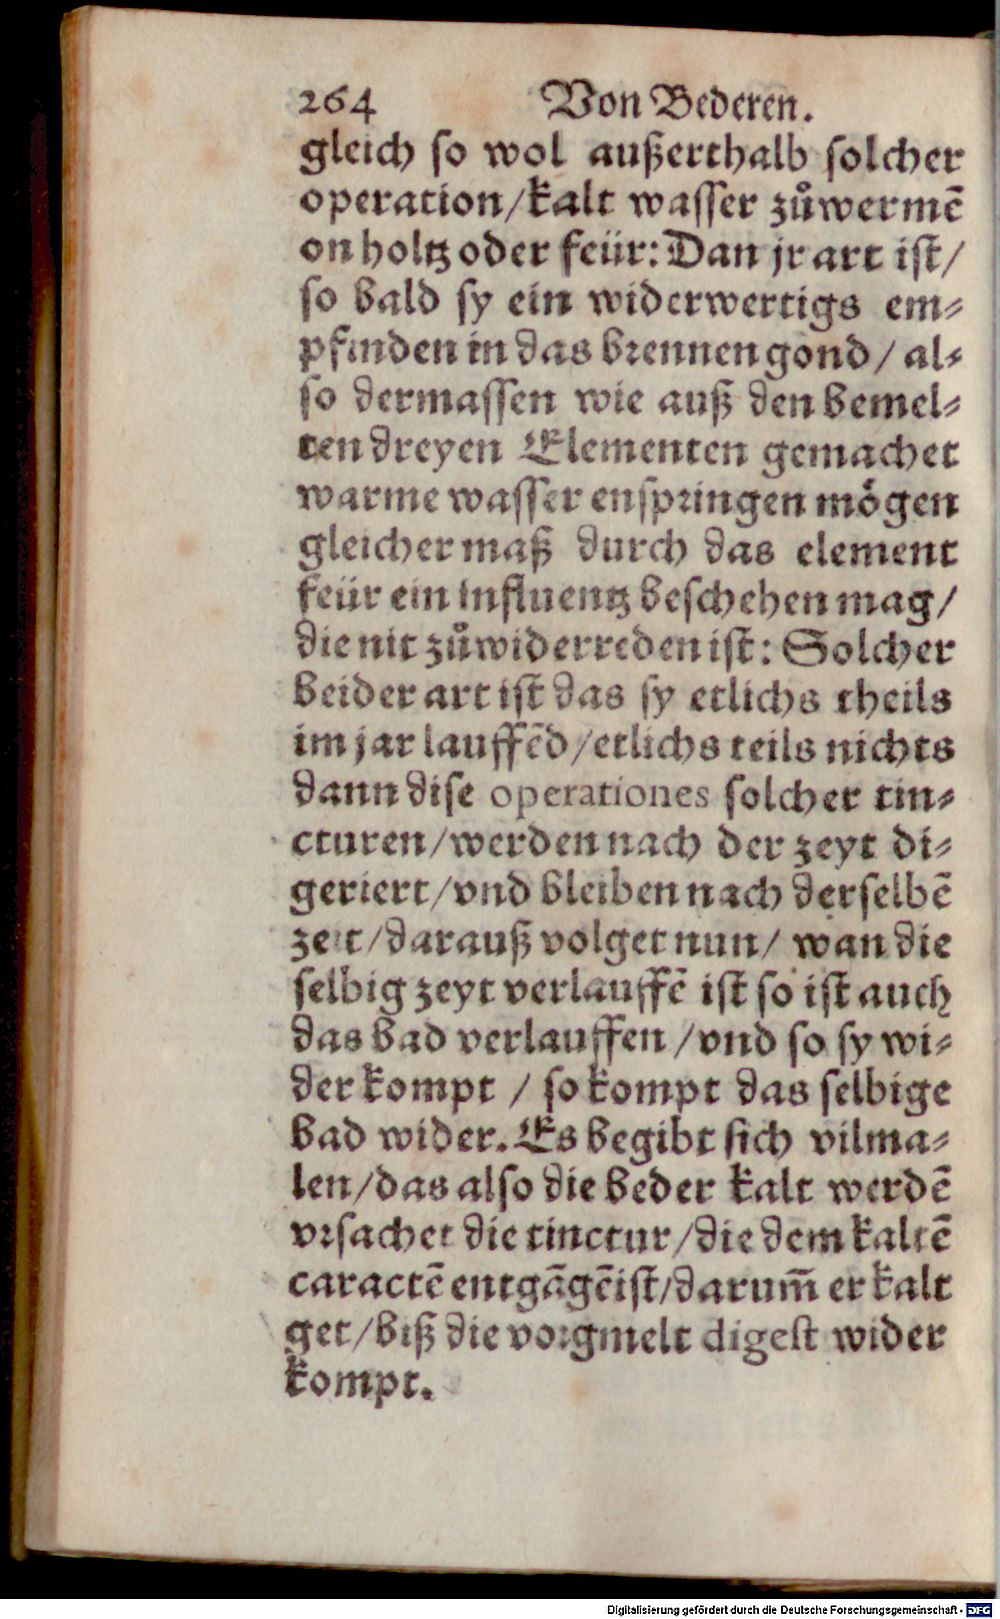 264 Von Bederen.
gleich so wol außerthalb solcher
operation/kalt wasser zůwermē
on holtz oder feür: Dan jr art ist/
so bald sy ein widerwertigs em⸗
pfinden in das brennen gond/ al⸗
so dermassen wie auß den bemel⸗
ten dreyen Elementen gemachet
warme wasser enspringen mögen
gleicher maß durch das element
feür ein influentz beschehen mag/
die nit zůwiderreden ist: Solcher
beider art ist das sy etlichs theils
im jar lauffēd/etlichs teils nichts
dann dise operationes solcher tin⸗
cturen/werden nach der zeyt di⸗
geriert/vnd bleiben nach derselbē
zeit/darauß volget nun/ wan die
selbig zeyt verlauffē ist so ist auch
das bad verlauffen /vnd so sy wi⸗
der kompt / so kompt das selbige
bad wider. Es begibt sich vilma⸗
len/das also die beder kalt werdē
vrsachet die tinctur/die dem kaltē
caractē entgāgēist/darum̄ er kalt
get/biß die vorgmelt digest wider
kompt.
Digitalisierung gefördert durch die Deutsche Forschungsgemeinschaft - DFG